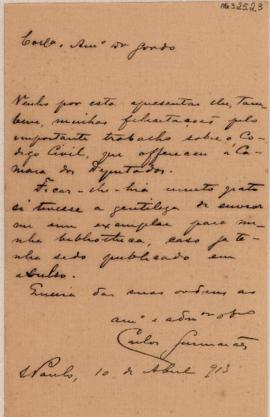 Venho por esta apresentar-lhe, tam
bem, minhas felicitações pelo
importante trabalho sobre o Co-
digo Civil, que offereceu á Ca-
mara dos Deputados.
Ficar-lhe-hia muito grato
si tivesse a gentileza de enviar
me um exemplar para mi-
nha bibliotheca, caso já te-
nha sido publicado em
avulso.
Queira dar suas ordens ao
am.º e adm.ºr obr.º
Carlos Guimarães
S. Paulo, 10 de Abril 913